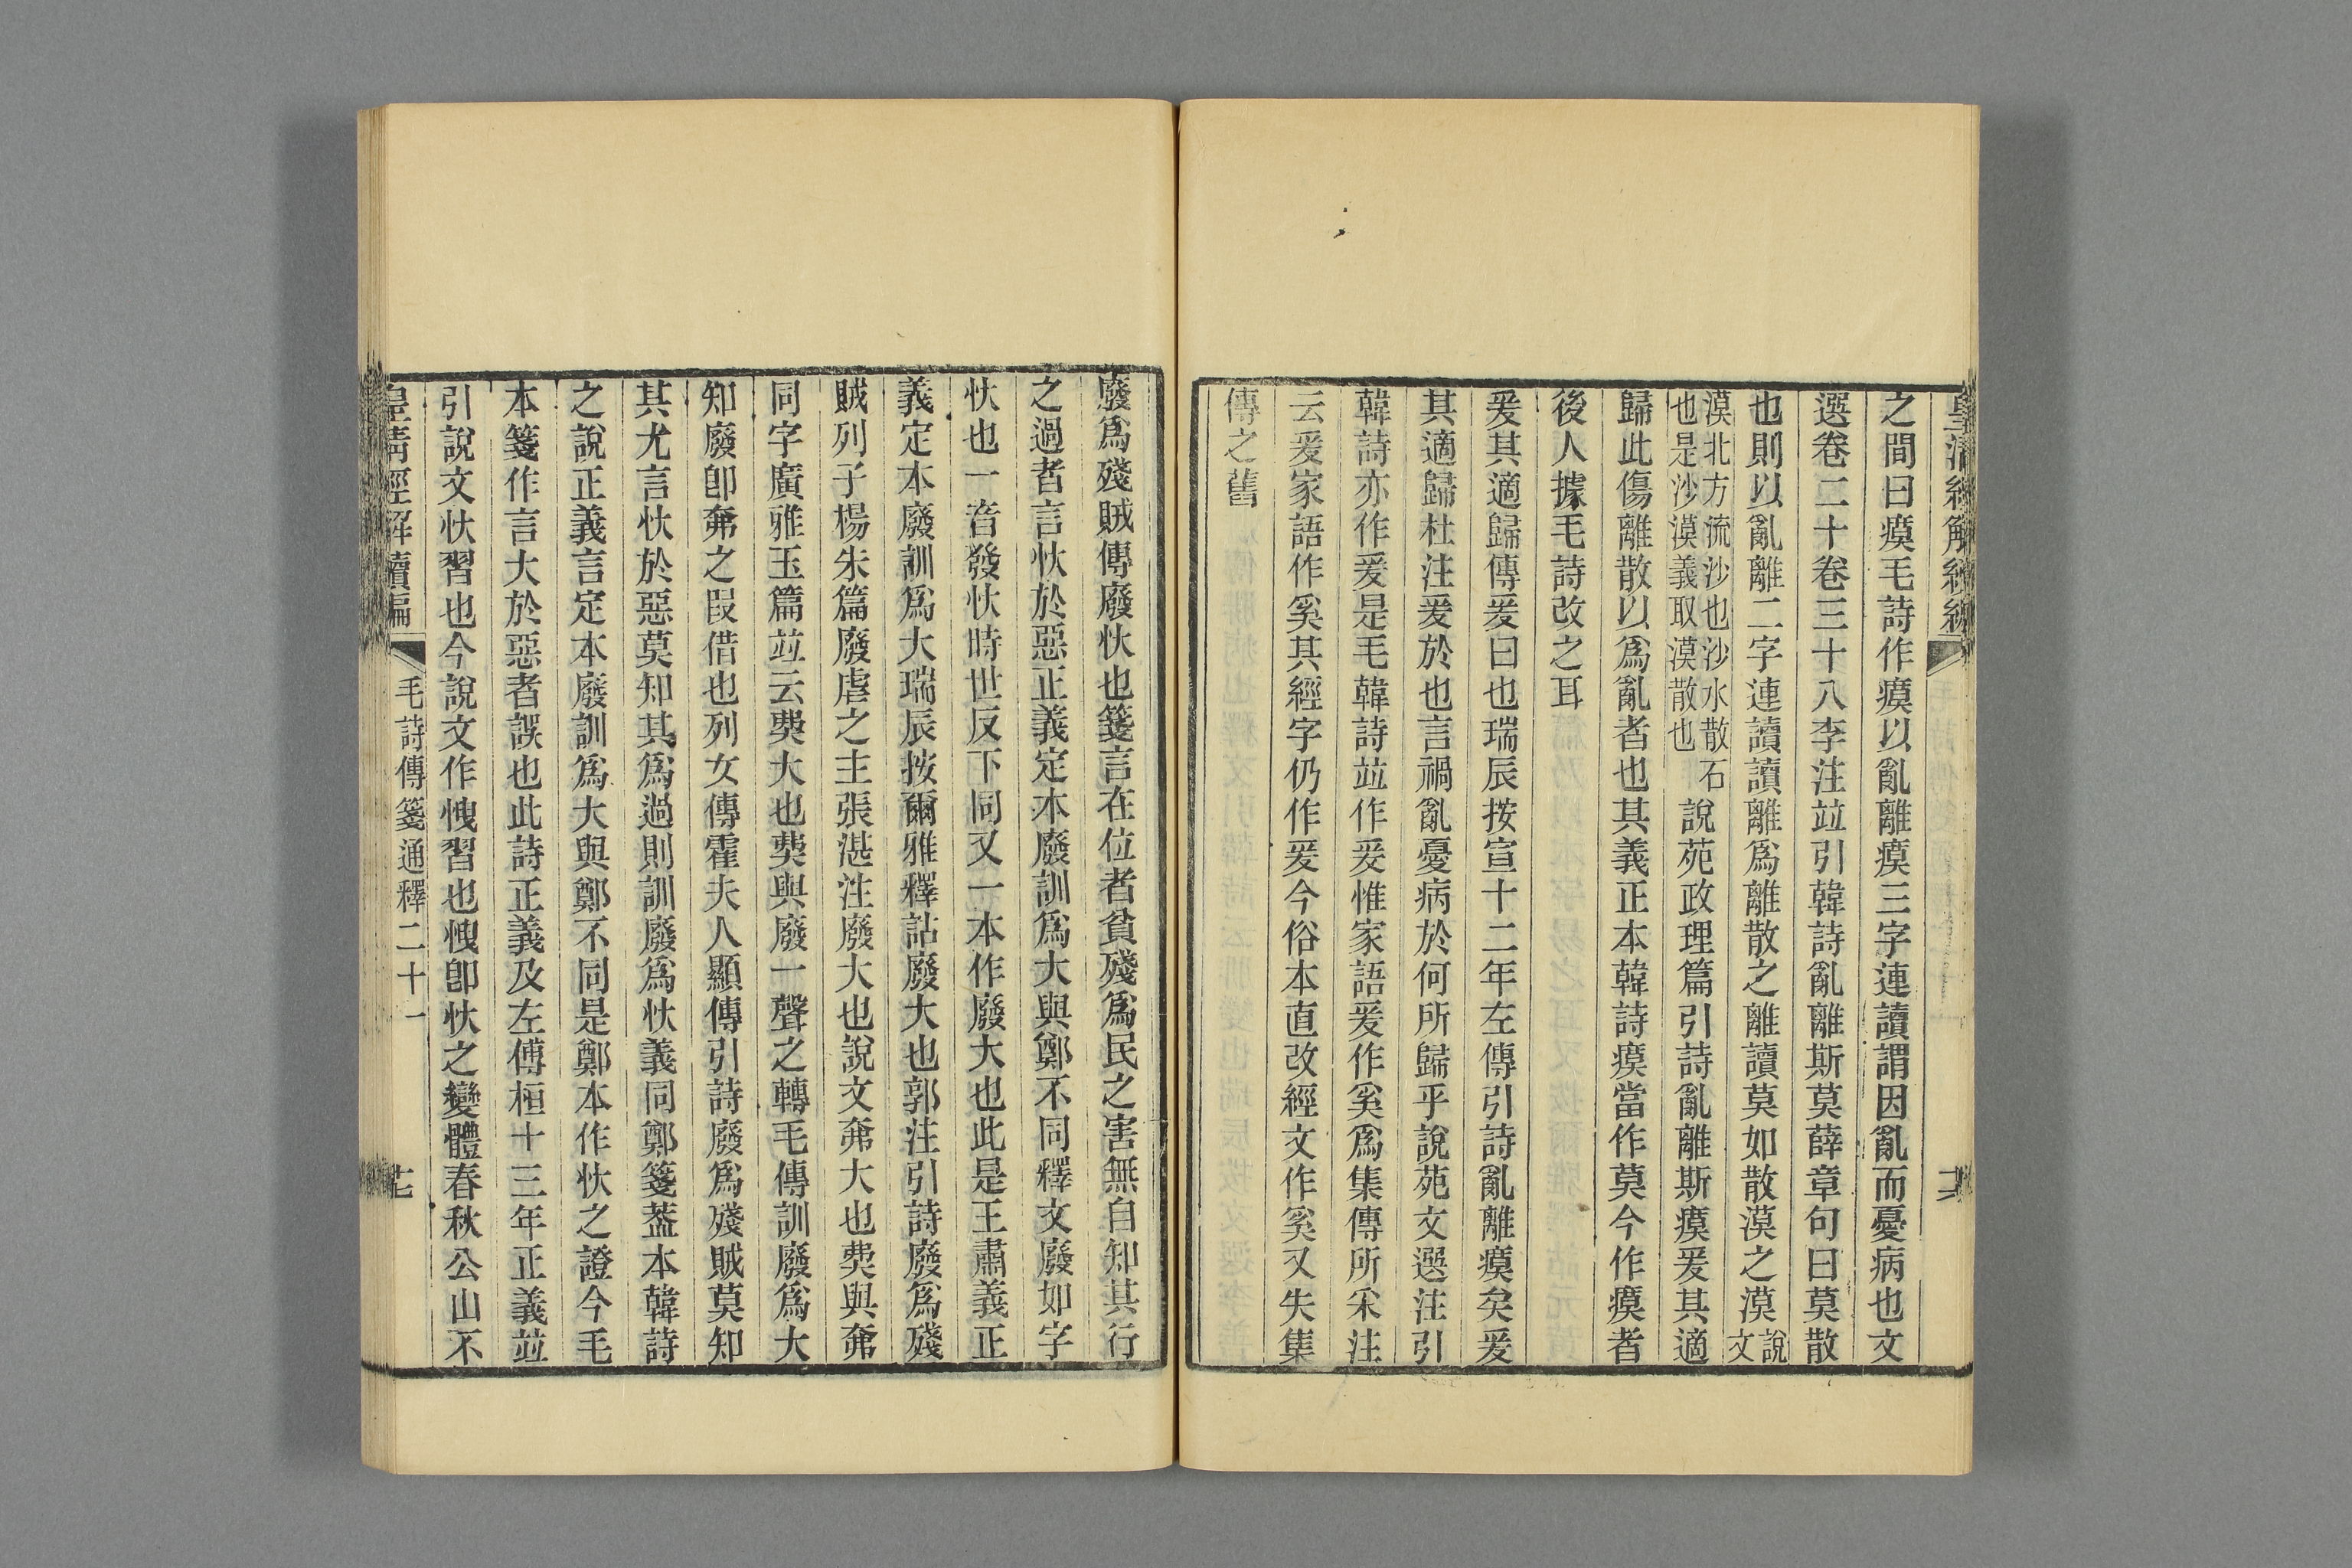 之間曰瘼毛詩作瘼以亂離瘼三字連讀謂因亂而憂病也文
選卷二十卷三十八李注竝引韓詩亂離斯莫薛章句曰莫散
也則以亂離二字連讀讀離爲離散之離讀莫如散漠之漠說文
漠北方流沙也沙水散石
也是沙漠義取漠散也
說苑政理篇引詩亂離斯瘼爰其適
歸此傷離散以爲亂者也其義正本韓詩瘼當作莫今作瘼者
後人據毛詩改之耳
爰其適歸傳爰曰也瑞辰按宣十二年左傳引詩亂離瘼矣爰
其適歸杜注爰於也言禍亂憂病於何所歸乎說苑文選注引
韓詩亦作爰是毛韓詩竝作爰惟家語爰作奚爲集傳所采注
云爰家語作奚其經字仍作爰今俗本直改經文作奚又失集
傳之舊
廢爲殘賊傳廢忕也箋言在位者貪殘爲民之害無自知其行
之過者言忕於惡正義定本廢訓爲大與鄭不同釋文廢如字
忕也一音發忕時世反下同又一本作廢大也此是王肅義正
義定本廢訓爲大瑞辰按爾雅釋詁廢大也郭注引詩廢爲殘
賊列子楊朱篇廢虐之主張湛注廢大也說文奔大也奰與奔
同字廣雅玉篇竝云奰大也奰與廢一聲之轉毛傳訓廢爲大
知廢卽奔之叚借也列女傳霍夫人顯傳引詩廢爲殘賊莫知
其尤言忕於惡莫知其爲過則訓廢爲忕義同鄭箋葢本韓詩
之說正義言定本廢訓爲大與鄭不同是鄭本作忕之證今毛
本箋作言大於惡者誤也此詩正義及左傳桓十三年正義竝
引說文忕習也今說文作愧習也愧卽忕之變體春秋公山不
皇淸經解續編
毛詩傳箋通釋二十一